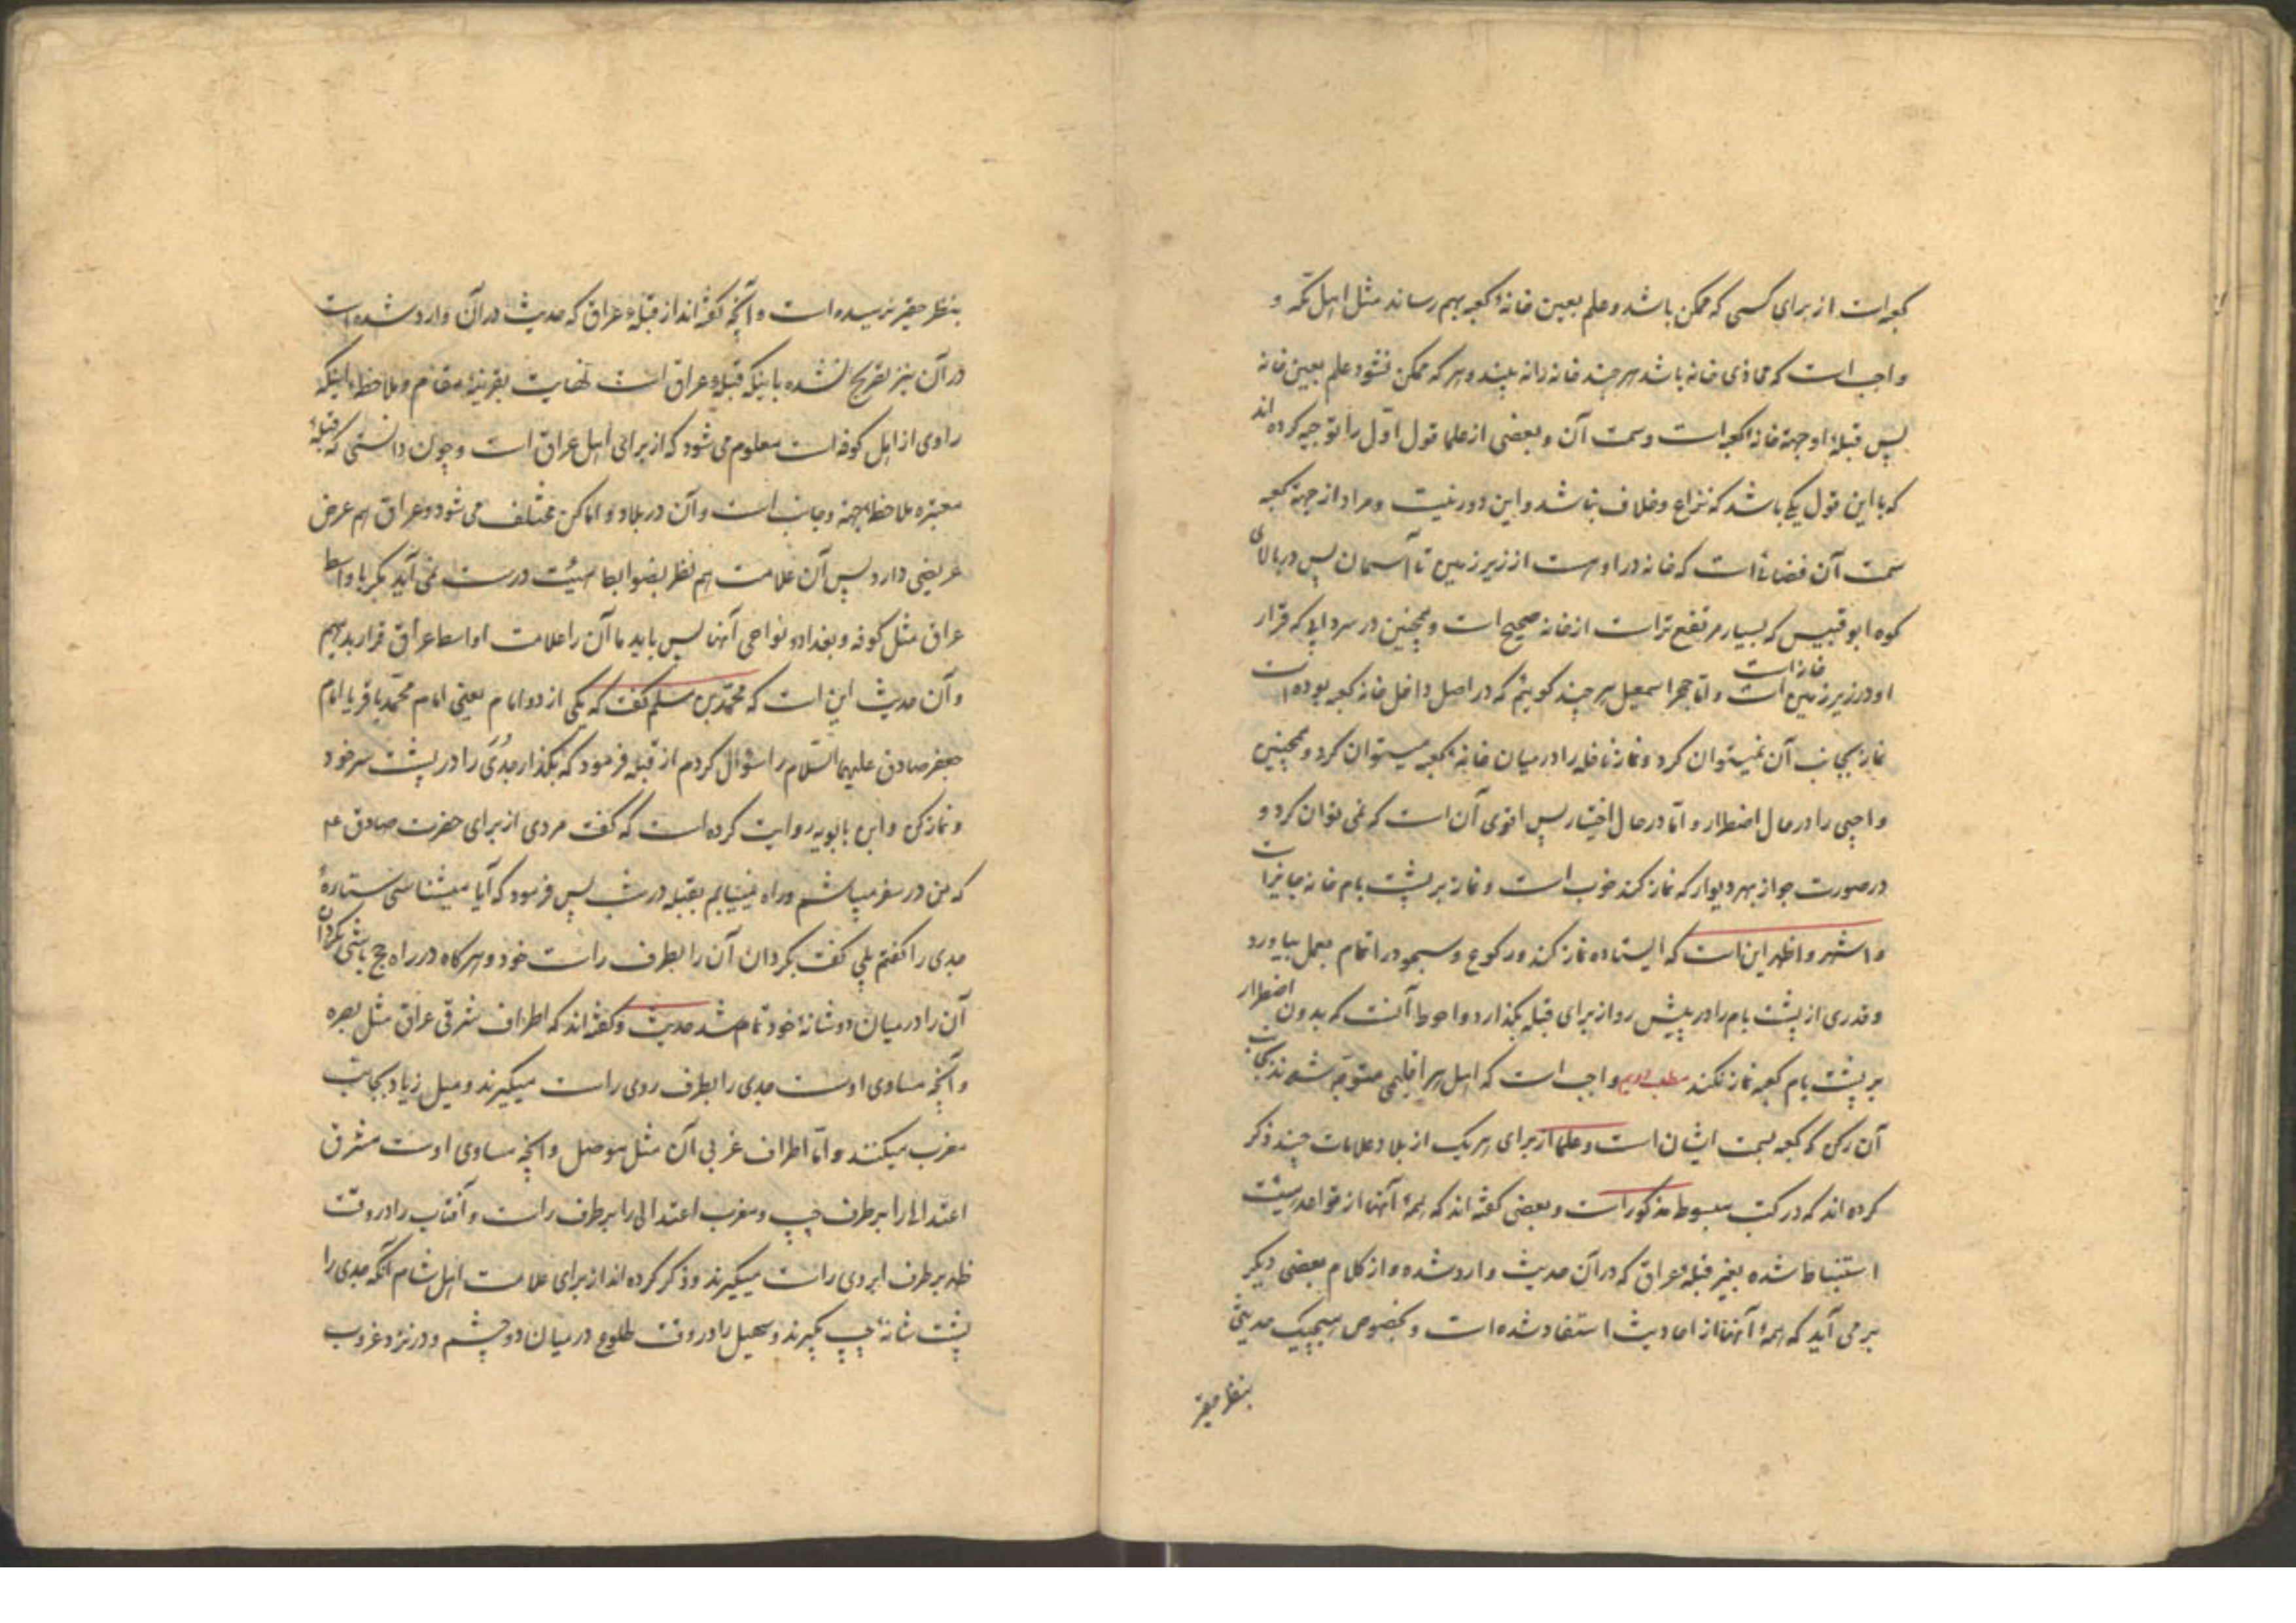 کعبه است از برای کسی که ممکن باشد و علم بعین خانهٔ کعبه بهم رساند مثل اهل مکه و
واجب است که محاذی خانه باشد هر چند خانه را نه بیند و هر که ممکن نشود علم بعین خانه
پس قبلهٔ او جهة خانه کعبه است و سمت آن و بعضی از علما قول اوّل را توجیه کرده اند
که با این قول یکی باشد که نزاع و خلاف نباشد و این دور نیست و مراد از جهة کعبه
سمت آن فضائی است که خانه در اوست از زیر زمین تا آسمان پس در بالای
کوه ابو قبیس که بسیار مرتفع تر است از خانه صحیح است و همچنین در سردابی که قرار
او در زیر زمین خانه است و امّا حجر اسمعیل هر چند گوییم که در اصل داخل خانه کعبه بوده است
نماز بجانب آن نمیتوان کرد و نماز نافله را در میان خانهٔ کعبه میتوان کرد و همچنین
واجبی را در حال اضطرار و امّا در حال اختیار پس اقوی آن است که نمی توان کرد و
در صورت جواز بهر دیوار که نماز کند خوب است و نماز بر پشت بام خانه جایز است
و اشهر و اظهر این است که ایستاده نماز کند و رکوع و سجود را تمام بعمل بیاورد
و قدری از پشت بام را در پیش رو از برای قبله بگذارد و احوط آنست که بدون اضطرار
بر پشت بام کعبه نماز نکند مطلب دویم واجب است که اهل هر اقلیمی متوجّه شوند بجانب
آن رکن که کعبه بسمت ایشان است و علما از برای هر یک از بلاد علامات چند ذکر
کرده اند که در کتب مبسوطه مذکور است و بعضی گفته اند که همهٔ آنها از قواعد هیئت
استنباط شده بغیر قبله عراق که در آن حدیث وارد شده و از کلام بعضی دیگر
بر می آید که همهٔ آنها از احادیث استفاد شده است و بخصوص هیچیک حدیثی
بنظر حقیر
بنظر حقیر نرسیده است و آنچه گفته اند از قبلهٔ عراق که حدیث در آن وارد شده است
در آن نیز تصریح نشده باینکه قبلهٔ عراق است نهایت بقرینهٔ مقام و ملاحظهٔ اینکه
راوی از اهل کوفه است معلوم می شود که از برای اهل عراق است و چون دانستی که قبلهٔ
معتبره ملاحظهٔ جهة و جانب است و آن در بلاد و اماکن مختلف می شود و عراق هم عرض
عریضی دارد پس آن علامت هم نظر بضوابط هیئت درست نمی آید مگر با واسط
عراق مثل کوفه و بغداد و نواحی آنها پس باید ما آن را علامت اواسط عراق قرار بدهیم
و آن حدیث این است که محمّد بن مسلم گفت که یکی از دو امام یعنی امام محمّد باقر یا امام
جعفر صادق علیهما السّلام را سؤال کردم از قبله فرمود که بگذار جُدَی را در پشت سر خود
و نماز کن و ابن بابویه روایت کرده است که گفت مردی از برای حضرت صادق ع
که من در سفر میباشم و راه نمییابم بقبله در شب پس فرمود که آیا میشناسی ستارهٔ
جدی را گفتم بلی گفت بگردان آن را بطرف راست خود و هر گاه در راه حج باشی بگردان
آن را در میان دو شانهٔ خود تمام شد حدیث و گفته اند که اطراف شرقی عراق مثل بصره
و آنچه مساوی اوست جدی را بطرف روی راست میگیرند و میل زیاد بجانب
مغرب میکنند و امّا اطراف غربی آن مثل موصل و آنچه مساوی اوست مشرق
اعتدالی را بر طرف چپ و مغرب اعتدالی را بر طرف راست و آفتاب را در وقت
ظهر بر طرف ابروی راست میگیرند و ذکر کرده اند از برای علامت اهل شام آنکه جدی را
پشت شانهٔ چپ بگیرند و سهیل را در وقت طلوع در میان دو چشم و در نزد غروب